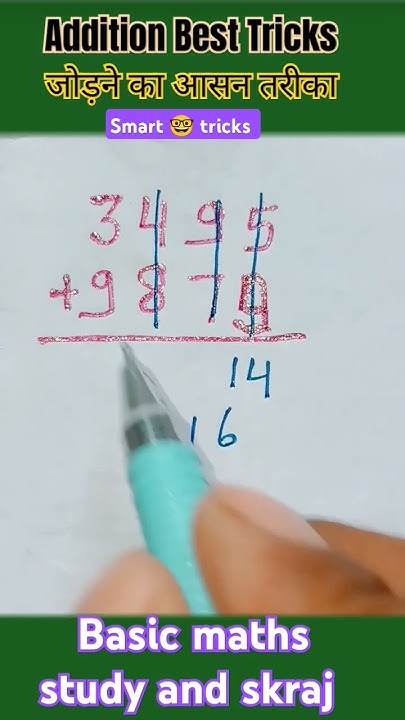 Addition Best Tricks
जोड़ने का आसन तरीका
Smart 🤓 tricks
3 4 9 5
+ 9 8 7 9
14
16
Basic maths
study and skraj